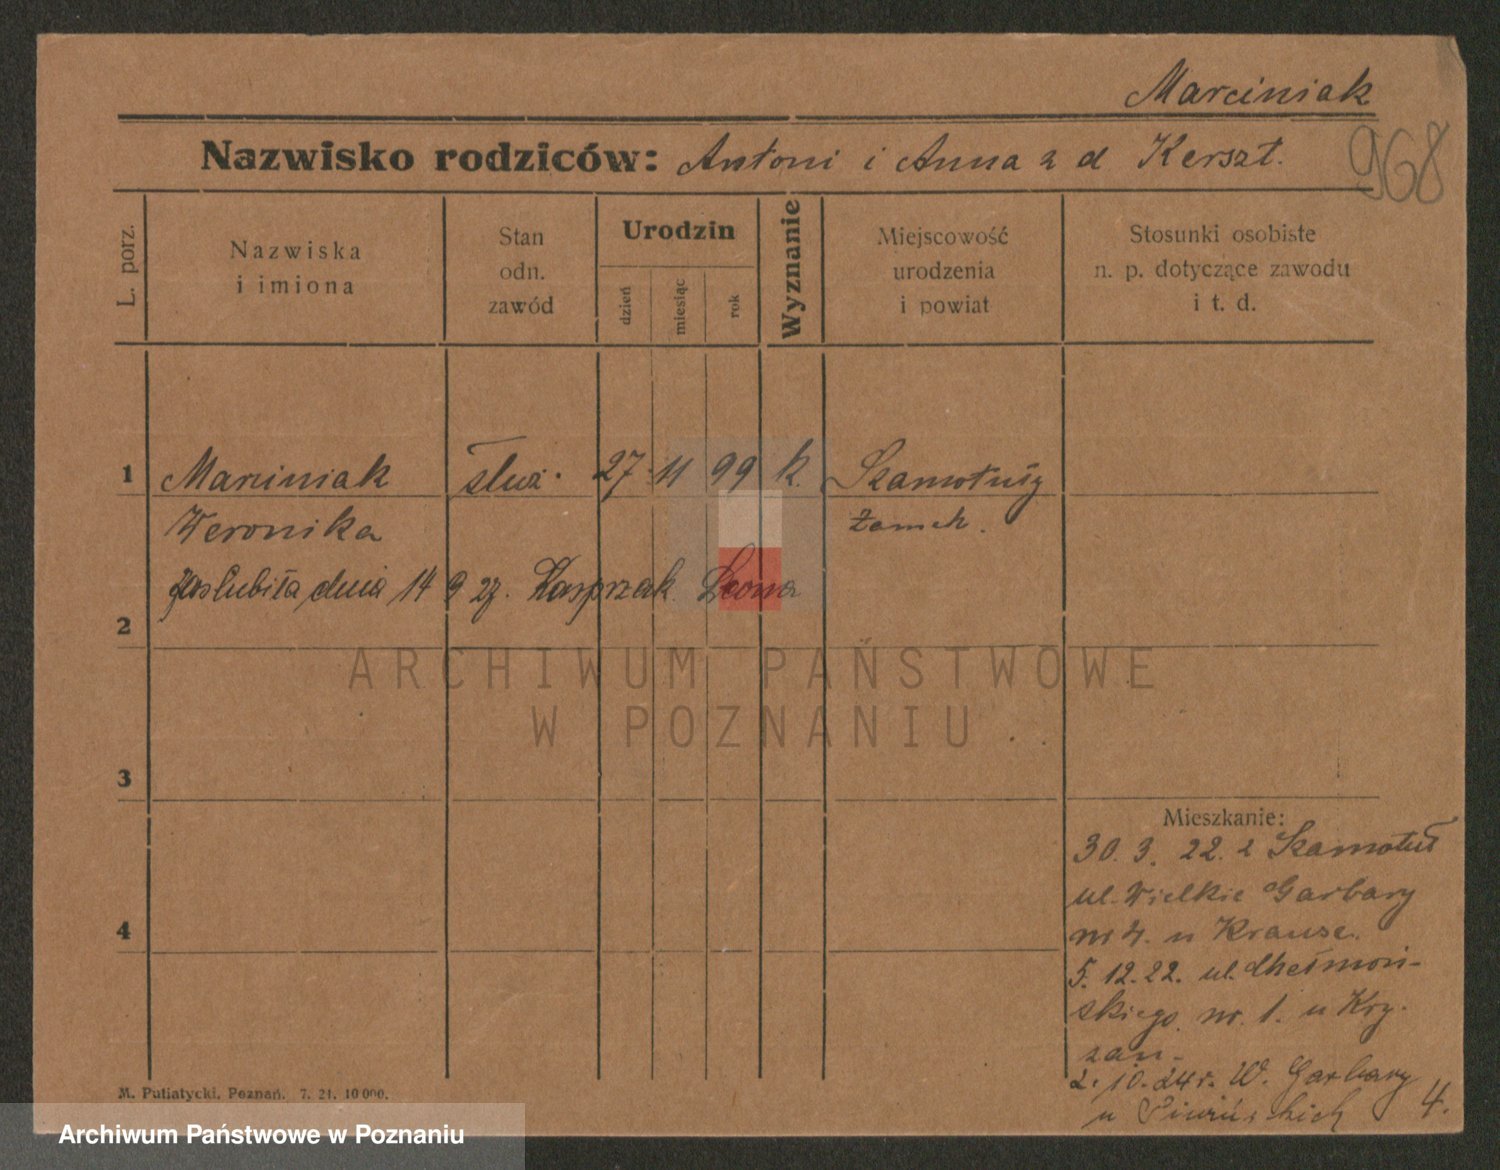 Marciniak
968
Nazwisko rodziców: Antoni i Anna z d Kerszt.
L. porz.
Nazwiska
i imiona
Stan
odn.
zawód
Urodzin
dzień
miesiąc
rok
Wyznanie
Miejscowość
urodzenia
i powiat
Stosunki osobiste
n. p. dotyczące zawodu
i t. d.
1 Marciniak służ. 27. 11 99 k. Szamotuły
Weronika Zamek.
zaślubiła dnia 14 9 27. Kasprzak Leona
2
ARCHIWUM PAŃSTWOWE
W POZNANIU
3
Mieszkanie:
30. 3. 22. z Szamotuł
ul. Wielkie Garbary
nr 4. u Krause.
4
5. 12. 22. ul. Chełmoń-
skiego nr. 1. u Kry-
zan-
2. 10. 24 r. W. Garbary 4.
u
M. Putiatycki, Poznań. 7. 21. 10000.
Archiwum Państwowe w Poznaniu